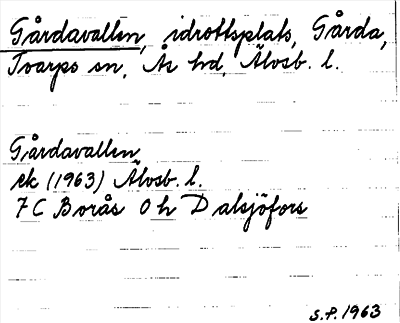 Gårdavallen, idrottsplats, Gårda,
Tvarps sn, Ås hd, Älvsb. l.
Gårdavallen
ek (1963) Älvsb. l.
7 C Borås 0 h Dalsjöfors
S.P. 1963